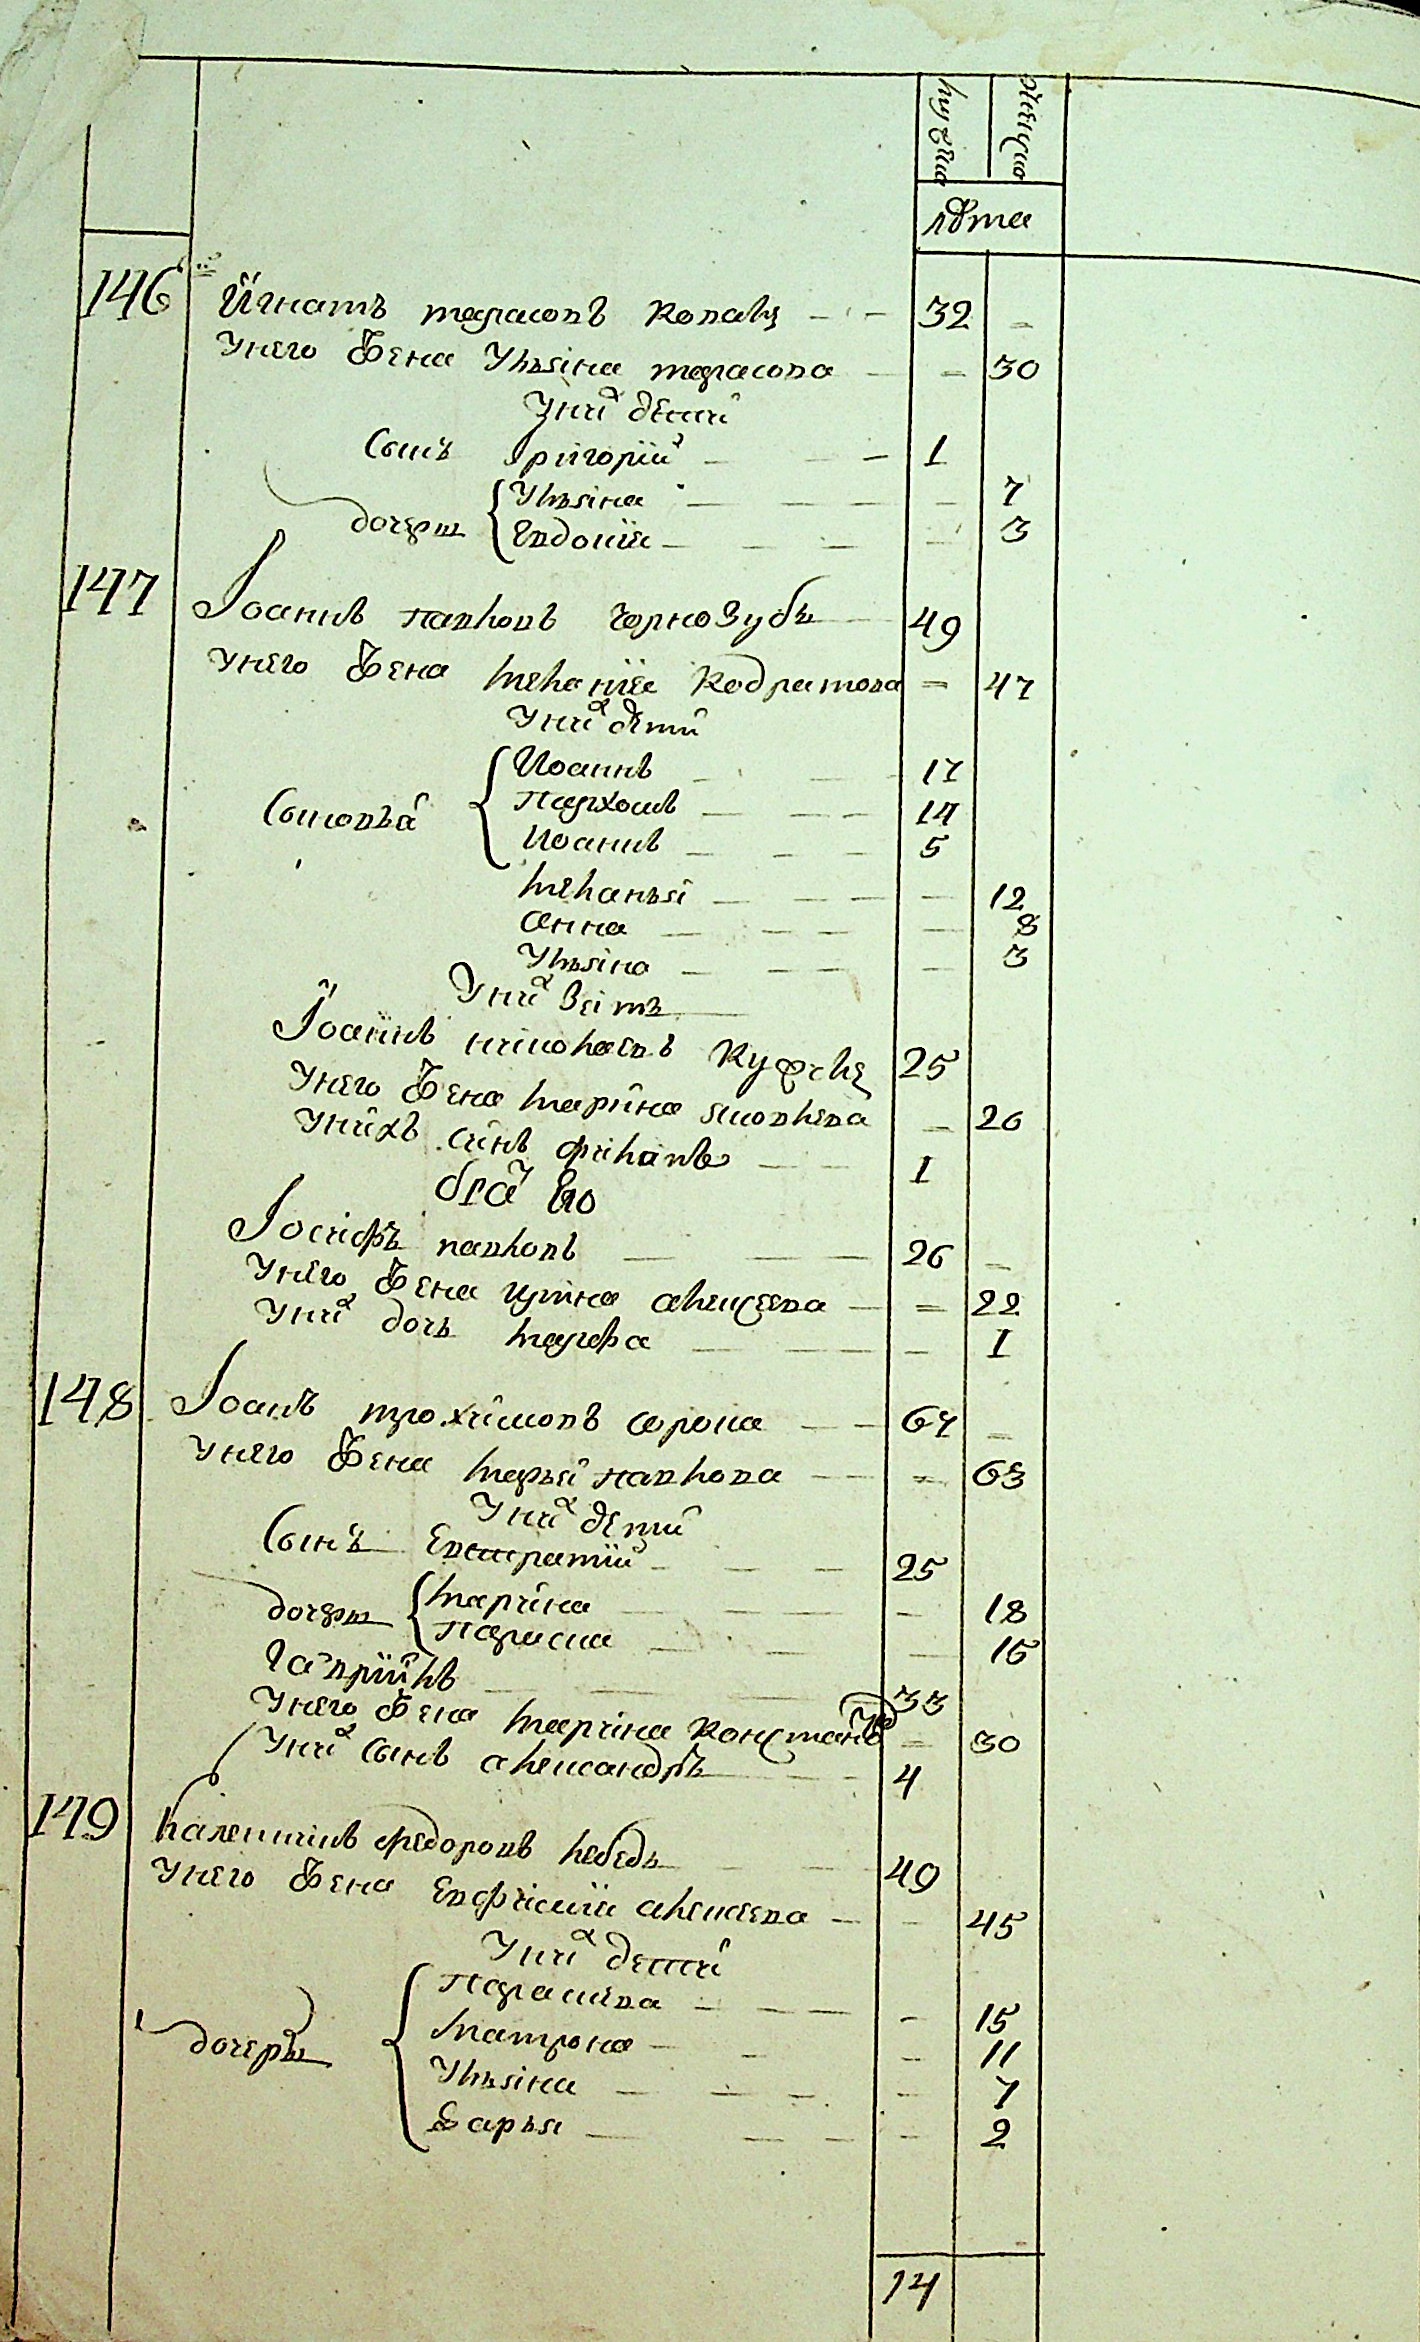 мужска женска
лѣта
146 Игнатъ тарасовъ коваль 32
У него жена Ульяна тарасова 30
У них дети
Сынъ Григорій 1
дочери Ульяна 7
Евдокія 3
147 Іоаннъ павловъ чернозубъ 49
У него жена меланія кодратова 47
У них дети
Сыновья Иоаннъ 17
пархомъ 14
Иоаннъ 5
меланья 12
анна 8
Ульяна 3
У них зять
Іоаннъ николаевъ 25
У него жена марина 26
У нихъ синъ филипъ 1
брат его
Іосифъ павловъ 26
У него жена ирина алексеева 22
У них дочь марфа 1
148 Іоанъ трохимовъ сорока 64
У него жена марья павлова 63
У них дети
Сынъ Евстратий 25
дочери марина 18
параска 15
Гавриилъ 33
У него жена марина констан 30
У них сынъ александръ 4
149 федоровъ лебедь 49
У него жена Евфимия алексеева 45
У них дети
дочеры параскева 15
матрона 11
Ульяна 7
Дарья 2
14